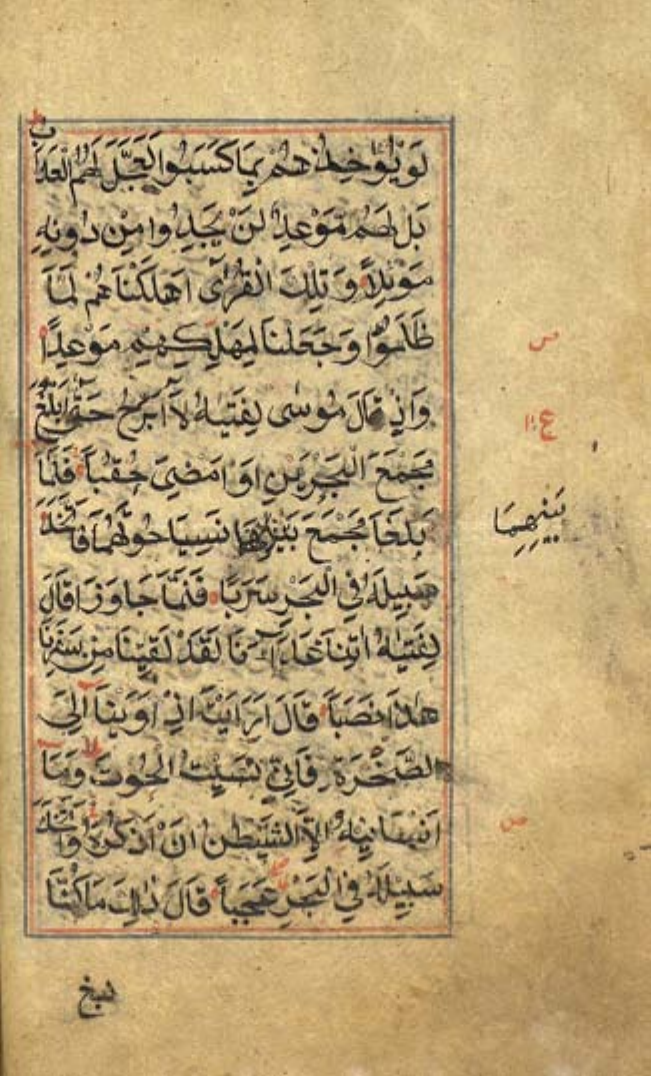 لَوْ يُؤَاخِذُهُمْ بِمَا كَسَبُوا لَعَجَّلَ لَهُمُ الْعَذَابَ
بَلْ لَهُمْ مَوْعِدٌ لَنْ يَجِدُوا مِنْ دُونِهِ
مَوْئِلًا وَتِلْكَ الْقُرَىٰ اَهْلَكْنَاهُمْ لَمَّا
ظَلَمُوا وَجَعَلْنَا لِمَهْلِكِهِمْ مَوْعِدًا
وَاِذْ قَالَ مُوسٰى لِفَتٰيهُ لَا اَبْرَحُ حَتّٰى اَبْلُغَ
مَجْمَعَ الْبَحْرَيْنِ اَوْ اَمْضِىَ حُقُبًا فَلَمَّا
بَلَغَا مَجْمَعَ بَيْنِهِمَا نَسِيَا حُوتَهُمَا فَاتَّخَذَ
سَبِيلَهُ فِى الْبَحْرِ سَرَبًا فَلَمَّا جَاوَزَا قَالَ
لِفَتٰيهُ اٰتِنَا غَدَاءَنَا لَقَدْ لَقِينَا مِنْ سَفَرِنَا
هٰذَا نَصَبًا قَالَ اَرَاَيْتَ اِذْ اَوَيْنَا اِلَى
الصَّخْرَةِ فَاِنِّى نَسِيتُ الْحُوتَ وَمَا
اَنْسٰانِيهُ اِلَّا الشَّيْطٰنُ اَنْ اَذْكُرَهُ وَاتَّخَذَ
سَبِيلَهُ فِى الْبَحْرِ عَجَبًا قَالَ ذٰلِكَ مَا كُنَّا
نبغ
بَيْنِهِمَا